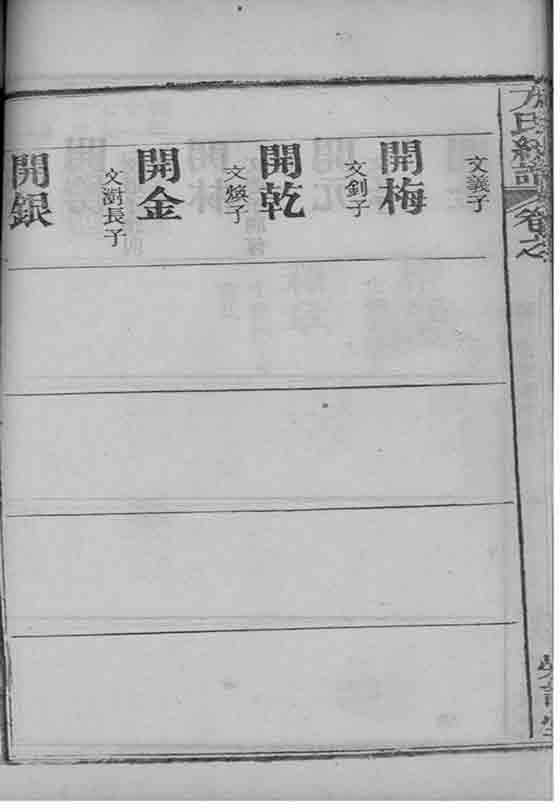 氏總譜 卷之
文義子
開梅
文釗子
開乾
文煥子
開金
文澍長子
開銀